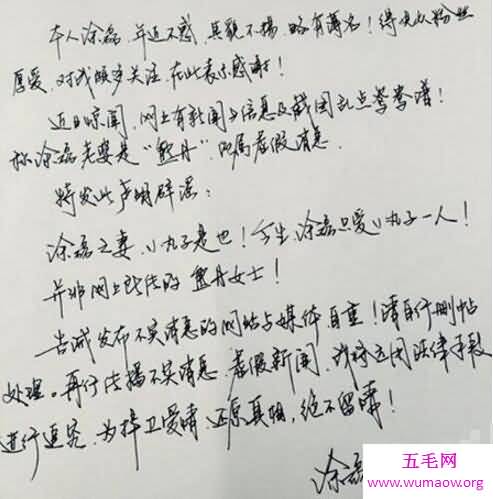 本人涂磊,年近不惑,其貌不扬,略有薄名!得广大粉丝
厚爱,对我颇多关注,在此表示感谢!
近日惊闻,网上有新闻与信息及截图乱点鸳鸯谱!
称涂磊老婆是“熊丹”,以属虚假消息。
特发此声明辟谣:
涂磊之妻,小丸子是也!今生涂磊只爱小丸子一人!
并非网上所传的熊丹女士!
告诫发布不实消息的网站与媒体自重!请自行删帖
处理。再行传播不实消息,虚假新闻,我将运用法律手段
进行追究,为捍卫爱情,还原真相,绝不留情!
涂磊
五毛网
www.wumaow.org